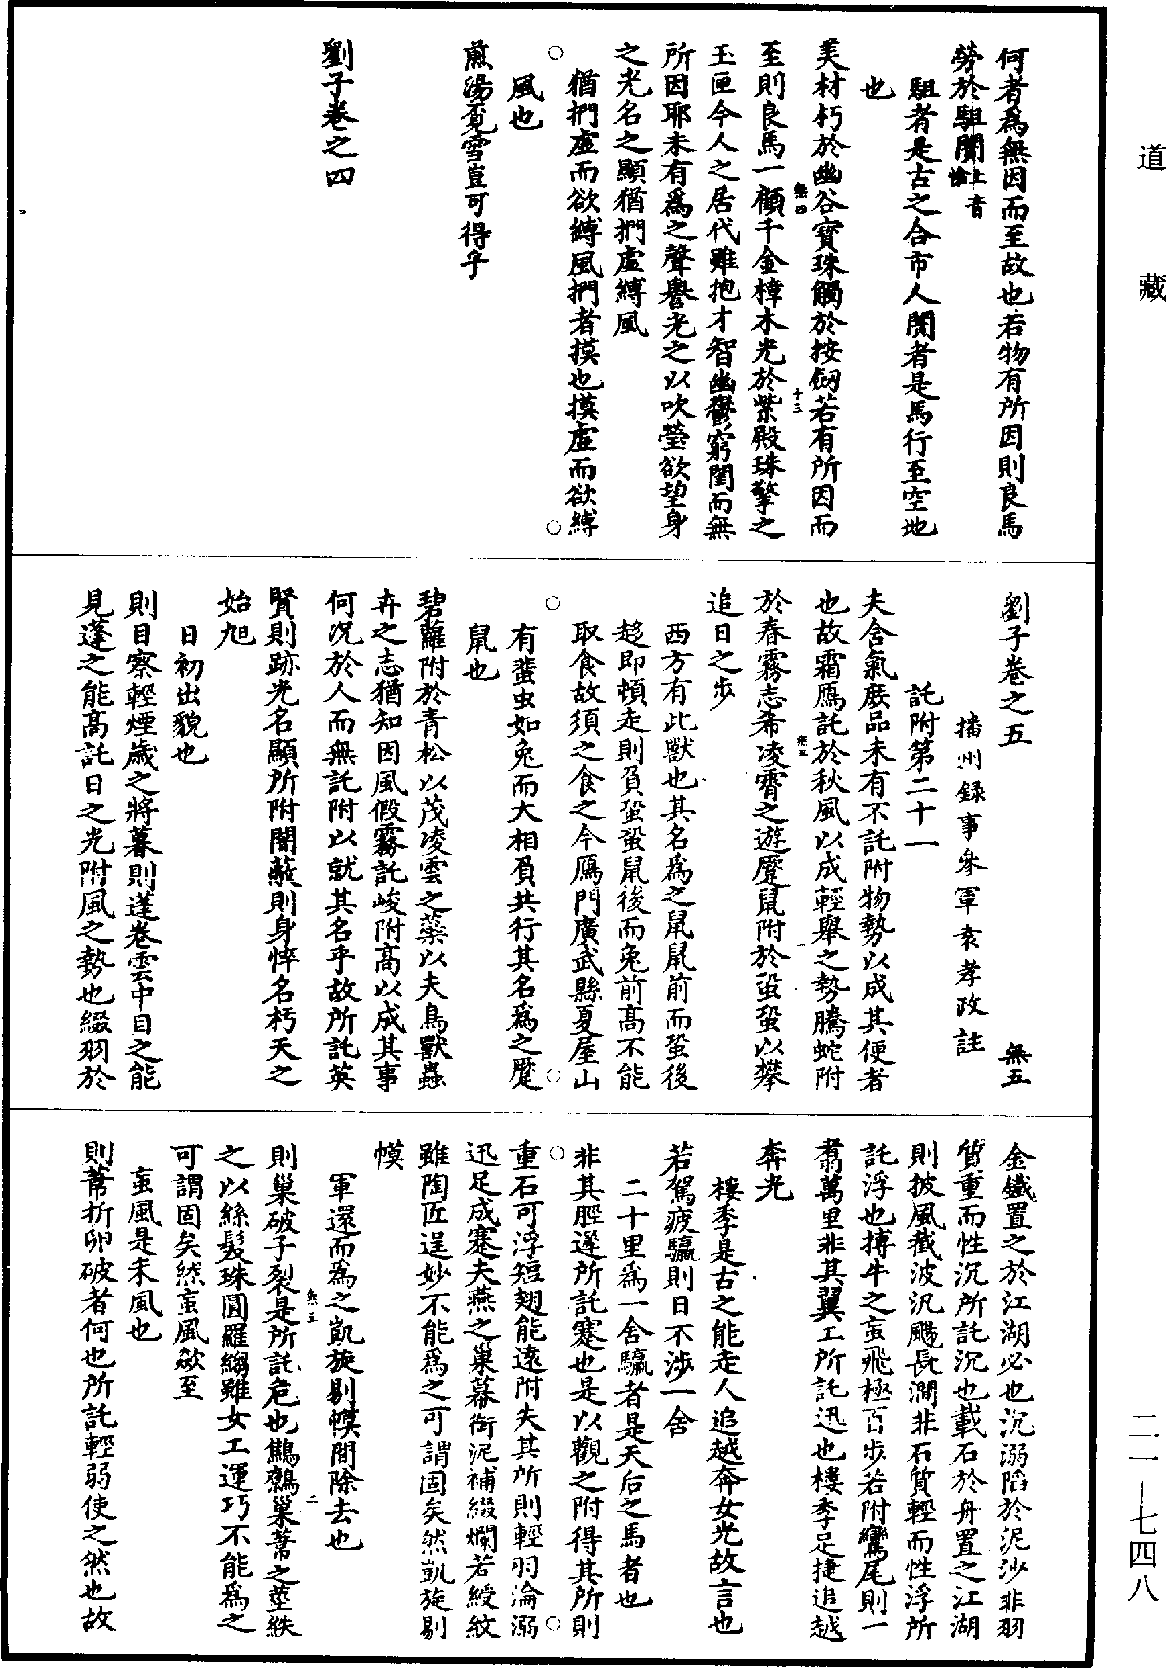 道藏
何者爲無因而至故也若物有所因則良馬
勞於駔闤上音
駔者是古之合市人闤者是馬行至空地
也
美材朽於幽谷寶珠觸於按劒若有所因而
無四 十三
至則良馬一顧千金樟木光於紫殿珠擎之
玉匣今人之居代雖抱才智幽鬱窮閨而無
所因耶未有爲之聲譽光之以吹瑩欲望身
之光名之顯猶捫虛縛風
猶捫虛而欲縛風捫者摸也摸虛而欲縛
風也
煎湯覓雪豈可得乎
劉子卷之四
劉子卷之五 無五
播州録事參軍袁孝政註
託附第二十一
夫含氣庶品未有不託附物勢以成其便者
也故霜鴈託於秋風以成輕舉之勢騰蛇附
無五
於春霧志希凌霄之遊蹷鼠附於蛩蛩以攀
追日之步
西方有此獸也其名爲之鼠鼠前而蛩後
趍即頓走則負蛩蛩鼠後而兔前高不能
取食故須之食之今鴈門廣武縣夏屋山
有蛩虫如兔而大相負共行其名爲之蹷
鼠也
碧蘿附於青松以茂凌雲之藥以夫鳥獸蟲
卉之志猶知因風假霧託峻附高以成其事
何況於人而無託附以就其名乎故所託英
賢則跡光名顯所附闇蔽則身悴名朽天之
始旭
日初出貌也
則目察輕煙歲之將暮則蓬卷雲中目之能
見蓬之能高託日之光附風之勢也綴羽於
金鐵置之於江湖必也沉溺陷於泥沙非羽
質重而性沉所託沉也載石於舟置之江湖
則披風截波汎颺長瀾非石質輕而性浮所
託浮也搏牛之䖟飛極百步若附鸞尾則一
翥萬里非其翼工所託迅也樓季足捷追越
奔光
樓季是古之能走人追越奔女光故言也
若駕疲驢則日不涉一舍
二十里爲一舍驢者是天后之馬者也
非其脛遲所託蹇也是以觀之附得其所則
重石可浮短翅能遠附失其所則輕羽淪溺
迅足成蹇夫燕之巢幕銜泥補綴爛若綬紋
雖陶匠逞妙不能爲之可謂固矣然凱旋剔
幙
軍還而爲之凱旋剔幙間除去也
則巢破子裂是所託危也鷦鷯巢葦之莖紩
無五 二
之以絲髮珠圓羅縐雖女工運巧不能爲之
可謂固矣然䖟風歘至
䖟風是末風也
則葦折卵破者何也所託輕弱使之然也故
二一—七四八